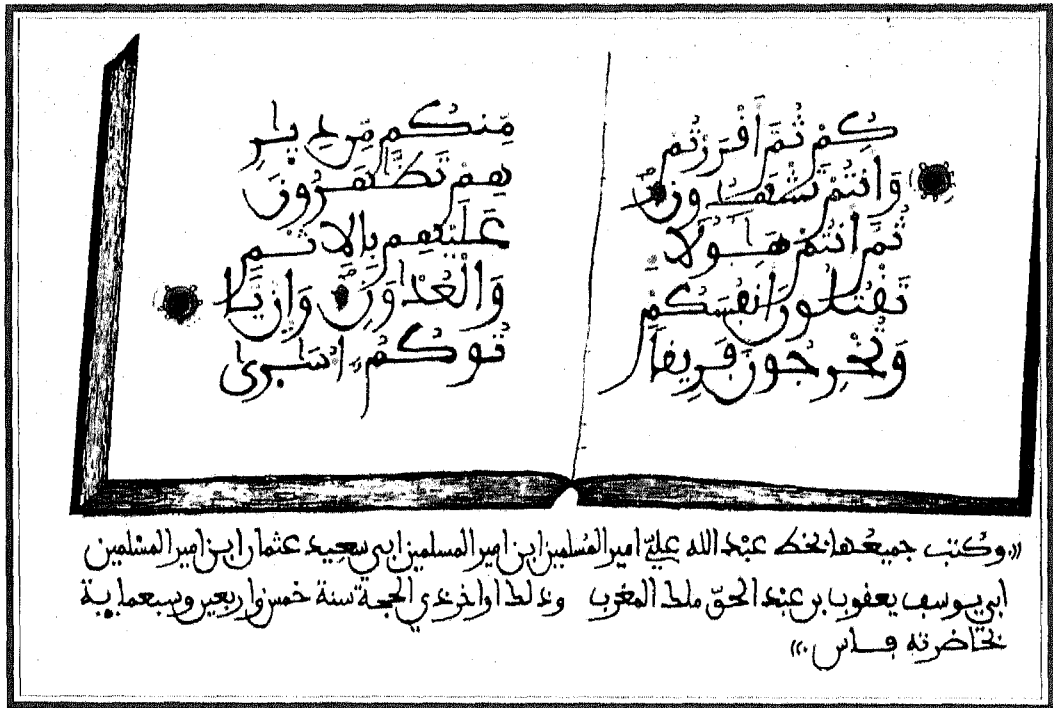 كُمْ ثُمَّ أَقْرَرْتُمْ
وَأَنتُمْ تَشْهَدُونَ
ثُمَّ أَنتُمْ هَـٰؤُلَآ
تَقْتُلُونَ أَنفُسَكُمْ
وَتُخْرِجُونَ فَرِيقاً
مِّنكُم مِّن دِيٰرِ
هِمْ تَظَّٰهَرُونَ
عَلَيْهِم بِالِاثْمِ
وَالْعُدْوَٰنِ وَإِنْ يَّا
تُوكُمُ أُسَٰرىٰ
((وكتب جميعها بخط عبد الله عليّ امير المسلمين ابن امير المسلمين ابي سعيد عثمان ابن امير المسلمين
ابي يوسف يعقوب بن عبد الحقّ ملك المغرب وذلك اواخر ذي الحجة سنة خمس واربعين وسبعماية
بحاضرته فاس.))